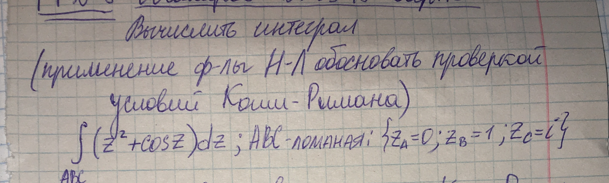 Вычислить интеграл
(применение ф-лы Н-Л обосновать проверкой
условий Коши-Римана)
∫(z²+cosz)dz; ABC-ломаная; {z_A=0; z_B=1; z_C=i}
ABC